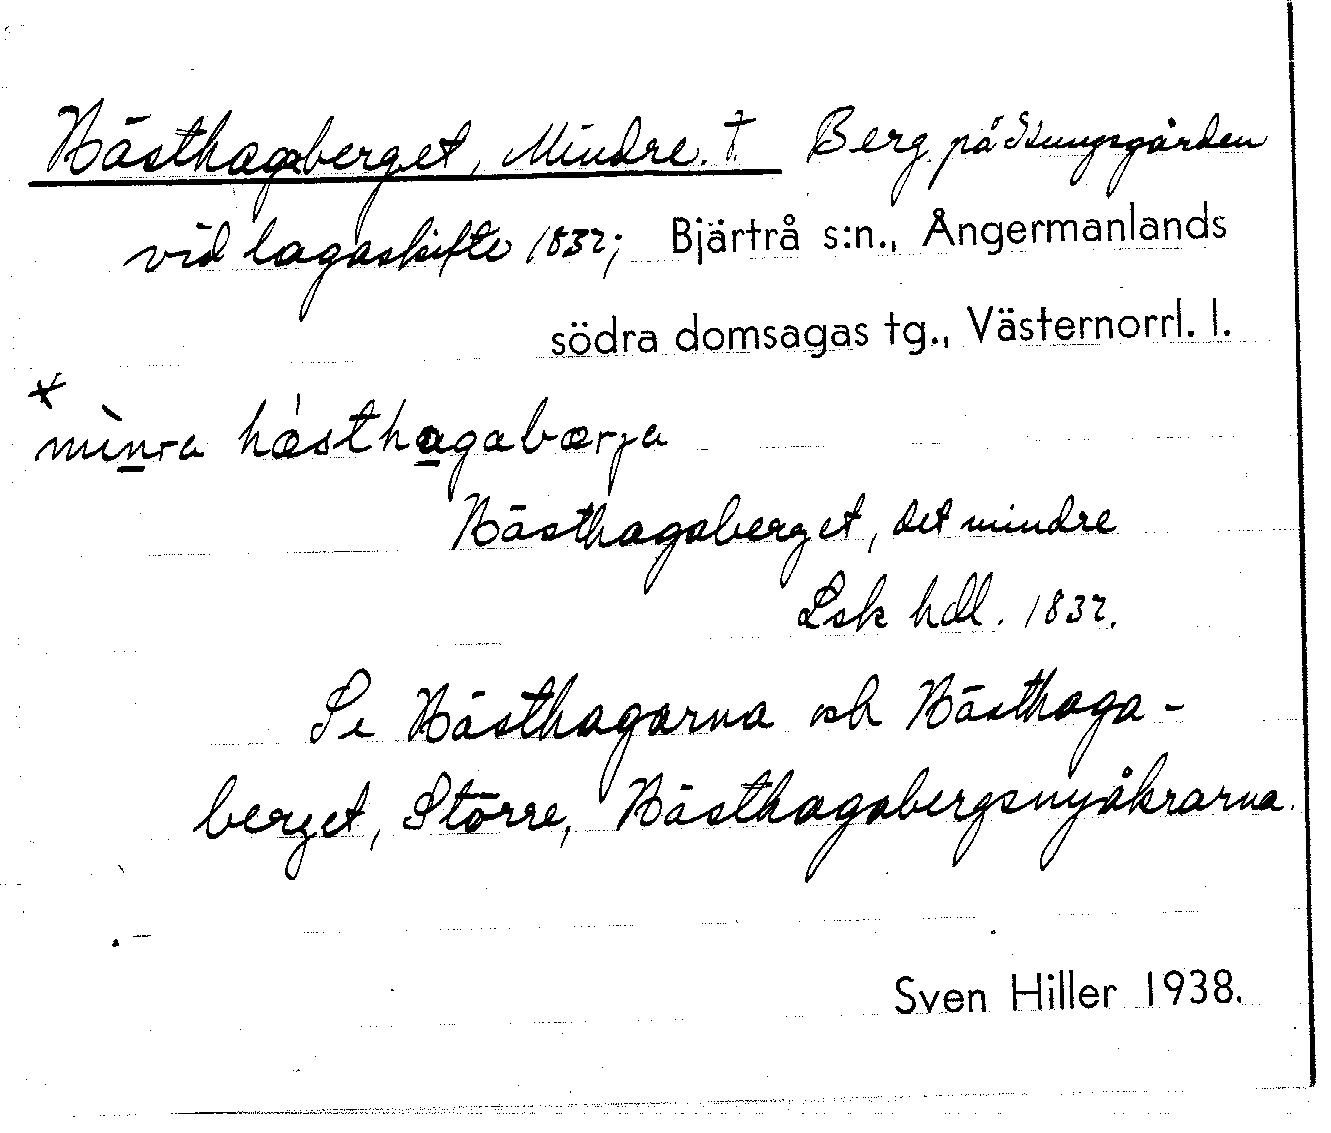 Hästhagaberget, Mindre. † Berg på Kungsgården
vid lagaskifte 1832; Bjärtrå s:n., Ångermanlands
södra domsagas tg., Västernorrl. l.
*
mìnra hästhagabærja
Hästhagaberget, det mindre
Lsk hdl. 1832.
Se Hästhagarna och Hästhaga-
berget, Större, Hästhagabergsnyåkrarna.
Sven Hiller 1938.